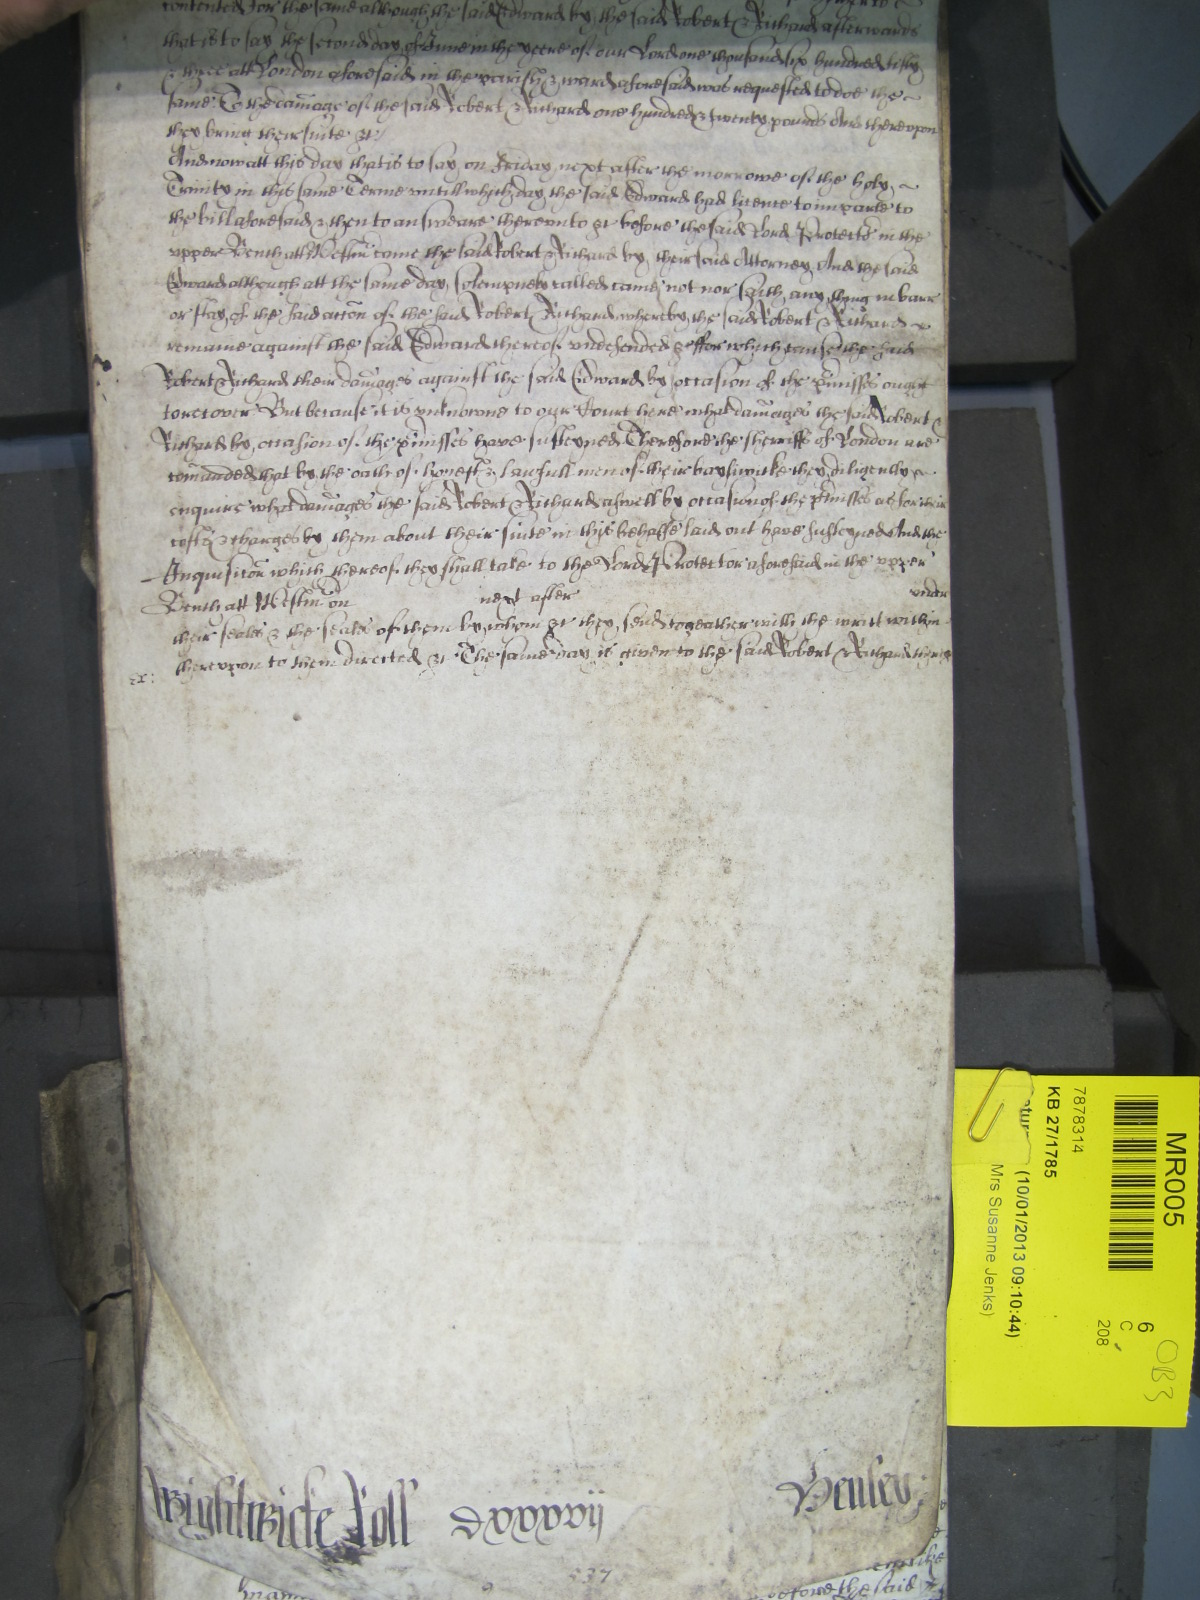 contented for the same although the said Edward by the said Robert & Richard afterwards
that is to say the second day of June in the yeere of our Lord one thousand six hundred fifty
& three att London aforesaid in the parish & ward aforesaid was requested to doe the
same To the damage of the said Robert & Richard one hundred & twenty pounds And thereupon
they bring their suite &c
And now att this day that is to say on Friday next after the morrowe of the holy
Trinity in this same Terme untill which day the said Edward had licence to imparle to
the bill aforesaid & then to answeare thereunto &c before the said Lord Protector in the
upper Bench att Westm come the said Robert & Richard by their said Attorney And the said
Edward although att the same day solempnely called came not nor saith any thing in barr
or stay of the said accon of the said Robert & Richard whereby the said Robert & Richard
remaine against the said Edward thereof undefended & ffor which cause the said
Robert & Richard their damages against the said Edward by occasion of the pmisses ought
to recover But because it is unknowne to our Court here what damages the said Robert &
Richard by occasion of the pmisses have susteyned Therefore the sherriffs of London are
comanded that by the oath of honest & lawfull men of their bayliwicke they diligently
enquire what damages the said Robert & Richard aswell by occasion of the pmisses as for their
costs & charges by them about their suite in this behalfe laid out have susteyned And the
Inquisicon which thereof they shall take to the Lord Protector aforesaid in the upper
Bench att Westm on next after under
their seales & the seales of them by whom &c they send togeather with the writt
thereupon to them directed &c The same day is given to the said Robert & Richard
&c:
Wightwicke Roll
Henley
237
before the said
MR005
7878314
KB 27/1785
(10/01/2013 09:10:44)
Mrs Susanne Jenks)
6
C
208
OB3